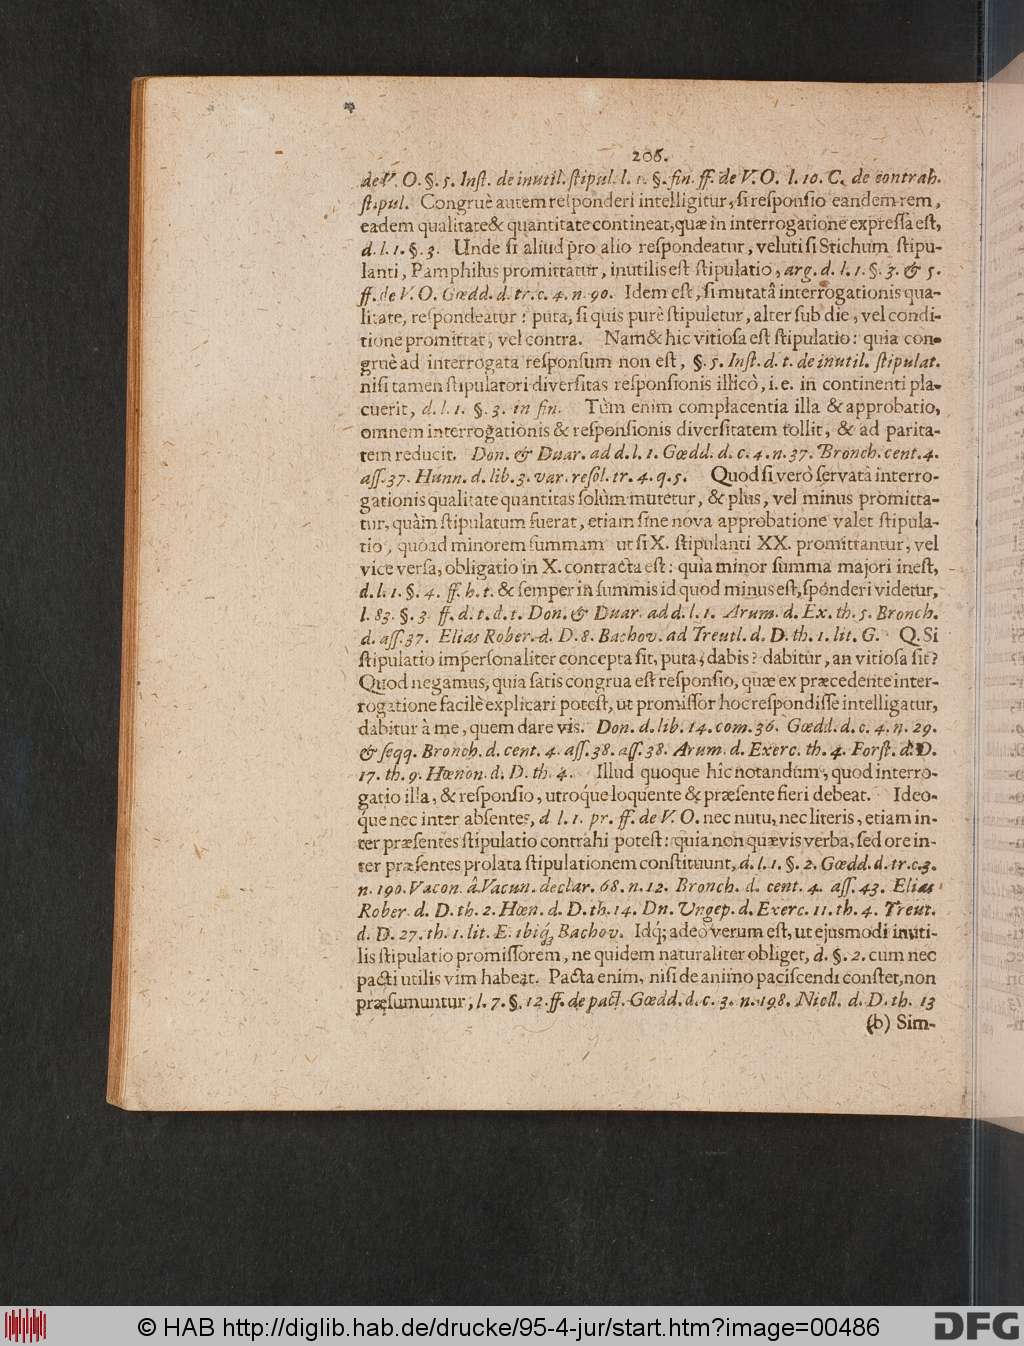 206.
de V. O. §. 5. Inst. de inutil. stipul. l. 1. §. fin. ff. de V. O. l. 10. C. de contrah.
stipul. Congruè autem responderi intelligitur, si responsio eandem rem,
eadem qualitate & quantitate contineat, quæ in interrogatione expressa est,
d. l. 1. §. 3. Unde si aliud pro alio respondeatur, veluti si Stichum stipu-
lanti, Pamphilus promittatur, inutilis est stipulatio, arg. d. l. 1. §. 3. & 5.
ff. de V. O. Gœdd. d. tr. c. 4. n. 90. Idem est, si mutatâ interrogationis qua-
litate, respondeatur: puta, si quis purè stipuletur, alter sub die, vel condi-
tione promittat, vel contra. Nam & hic vitiosa est stipulatio: quia con-
gruè ad interrogata responsum non est, §. 5. Inst. d. t. de inutil. stipulat.
nisi tamen stipulatori diversitas responsionis illicò, i. e. in continenti pla-
cuerit, d. l. 1. §. 3. in fin. Tùm enim complacentia illa & approbatio,
omnem interrogationis & responsionis diversitatem tollit, & ad parita-
tem reducit. Don. & Duar. ad d. l. 1. Gœdd. d. c. 4. n. 37. Bronch. cent. 4.
ass. 37. Hunn. d. lib. 3. var. resol. tr. 4. q. 5. Quod si verò servatâ interro-
gationis qualitate quantitas solùm mutetur, & plus, vel minus promitta-
tur, quàm stipulatum fuerat, etiam sine nova approbatione valet stipula-
tio, quoad minorem summam ut si X. stipulanti XX. promittantur, vel
vice versa, obligatio in X. contracta est: quia minor summa majori inest,
d. l. 1. §. 4. ff. h. t. & semper in summis id quod minus est, sponderi videtur,
l. 83. §. 3 ff. d. t. d. t. Don. & Duar. ad d. l. 1. Arum. d. Ex. th. 5. Bronch.
d. ass. 37. Elias Rober. d. D. 8. Bachov. ad Treutl. d. D. th. 1. lit. G. Q. Si
stipulatio impersonaliter concepta sit, puta, dabis? dabitur, an vitiosa sit?
Quod negamus, quia satis congrua est responsio, quæ ex præcedente inter-
rogatione facilè explicari potest, ut promissor hoc respondisse intelligatur,
dabitur à me, quem dare vis. Don. d. lib. 14. com. 36. Gœdd. d. c. 4. n. 29.
& seqq. Bronch. d. cent. 4. ass. 38. ass. 38. Arum. d. Exerc. th. 4. Forst. d. D.
17. th. 9. Hœnon. d. D. th. 4. Illud quoque hic notandum, quod interro-
gatio illa, & responsio, utroque loquente & præsente fieri debeat. Ideo-
que nec inter absentes, d l. 1. pr. ff. de V. O. nec nutu, nec literis, etiam in-
ter præsentes stipulatio contrahi potest: quia non quævis verba, sed ore in-
ter præsentes prolata stipulationem constituunt, d. l. 1. §. 2. Gœdd. d. tr. c. 3.
n. 190. Vacon. â Vacun. declar. 68. n. 12. Bronch. d. cent. 4. ass. 43. Elias
Rober. d. D. th. 2. Hœn. d. D. th. 14. Dn. Ungep. d. Exerc. 11. th. 4. Treut.
d. D. 27. th. 1. lit. E. ibiq; Bachov. Idq; adeò verum est, ut ejusmodi inuti-
lis stipulatio promissorem, ne quidem naturaliter obliget, d. §. 2. cum nec
pacti utilis vim habeat. Pacta enim, nisi de animo paciscendi constet, non
præsumuntur, l. 7. §. 12. ff. de pact. Gœdd. d. c. 3. n. 198. Nicll. d. D. th. 13
(b) Sim-
© HAB http://diglib.hab.de/drucke/95-4-jur/start.htm?image=00486
DFG